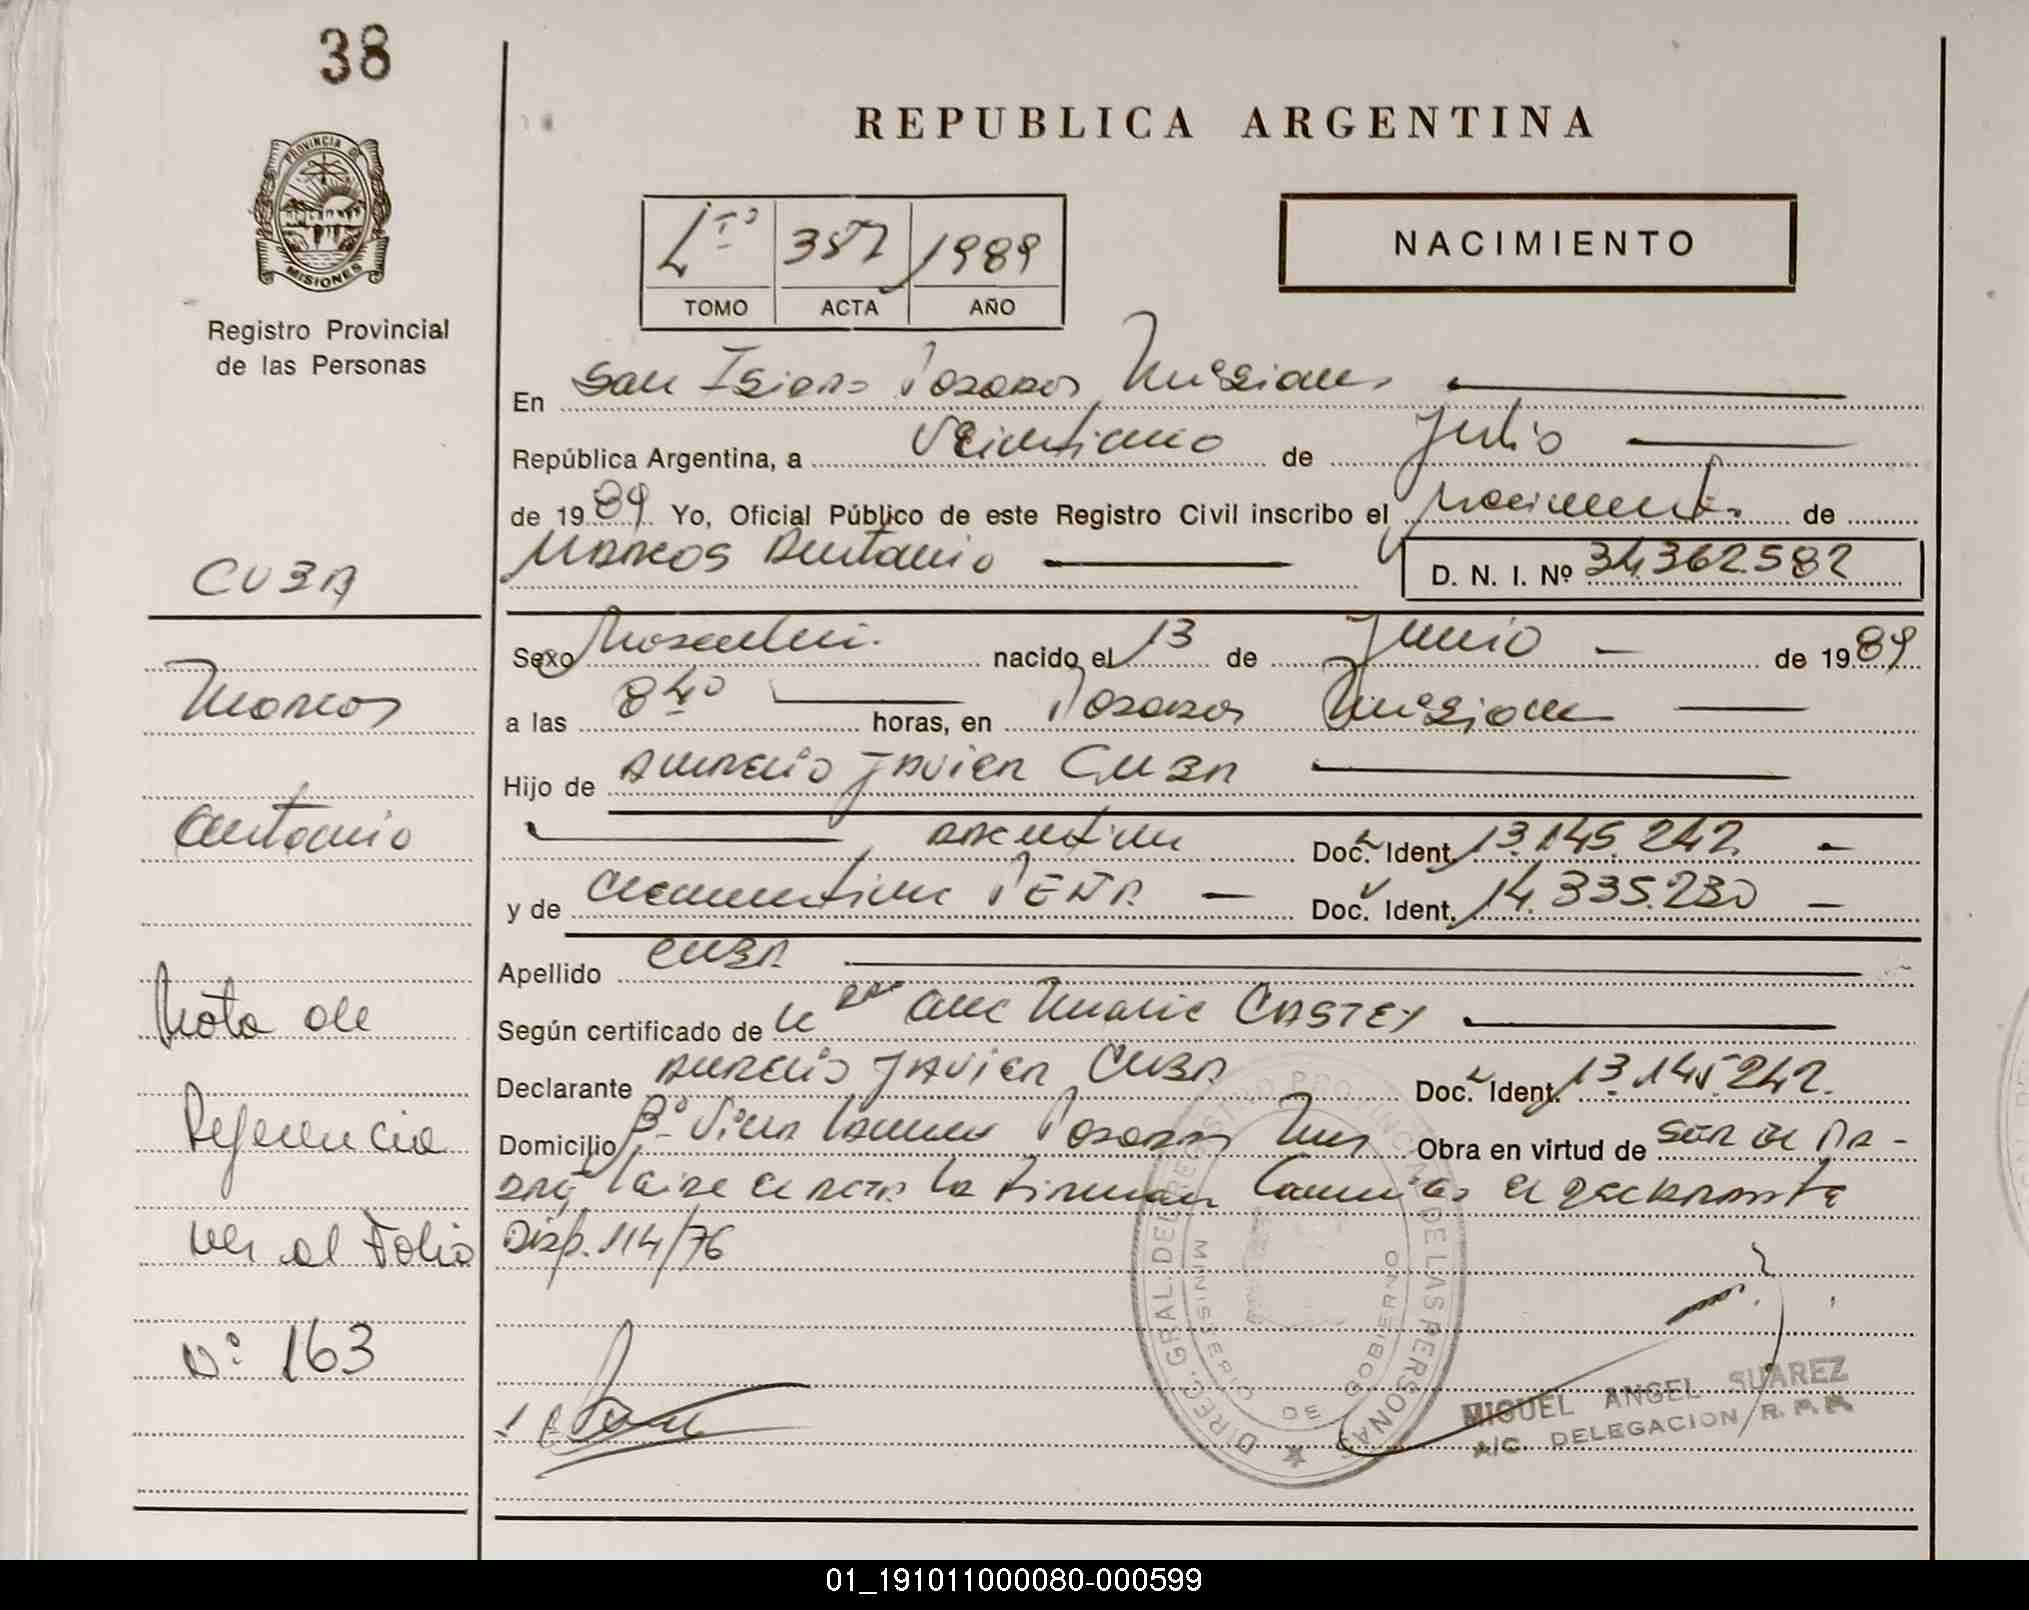 38
REPUBLICA ARGENTINA
PROVINCIA DE
MISIONES
Registro Provincial
de las Personas
Lº 387 1989
TOMO ACTA AÑO
NACIMIENTO
En San Isidro Posadas Misiones
República Argentina, a Veintiuno de Julio
de 1989 Yo, Oficial Público de este Registro Civil inscribo el nacimiento de
Marcos Antonio
D. N. I. Nº 34.362.582
CUBA
Marcos
Antonio
Nota de
Referencia
ver al Folio
Nº 163
Sexo Masculino nacido el 13 de Junio de 1989
a las 8 40 horas, en Posadas Misiones
Hijo de Aurelio Javier Cuba
argentino Doc. Ident. 13.145.242
y de Clementina PEÑA Doc. Ident. 14.335.230
Apellido CUBA
Según certificado de Ana Maria CASTEY
Declarante Aurelio Javier Cuba Doc. Ident. 13.145.242.
Domicilio Bº Posadas Mis Obra en virtud de ser el pa-
dre el acta la firman el declarante
Disp. 114/76
DIREC. GRAL. DEL REGISTRO PROVINCIAL DE LAS PERSONAS
MINISTERIO DE GOBIERNO
MIGUEL ANGEL SUAREZ
A/C DELEGACION R. P. P.
01_191011000080-000599